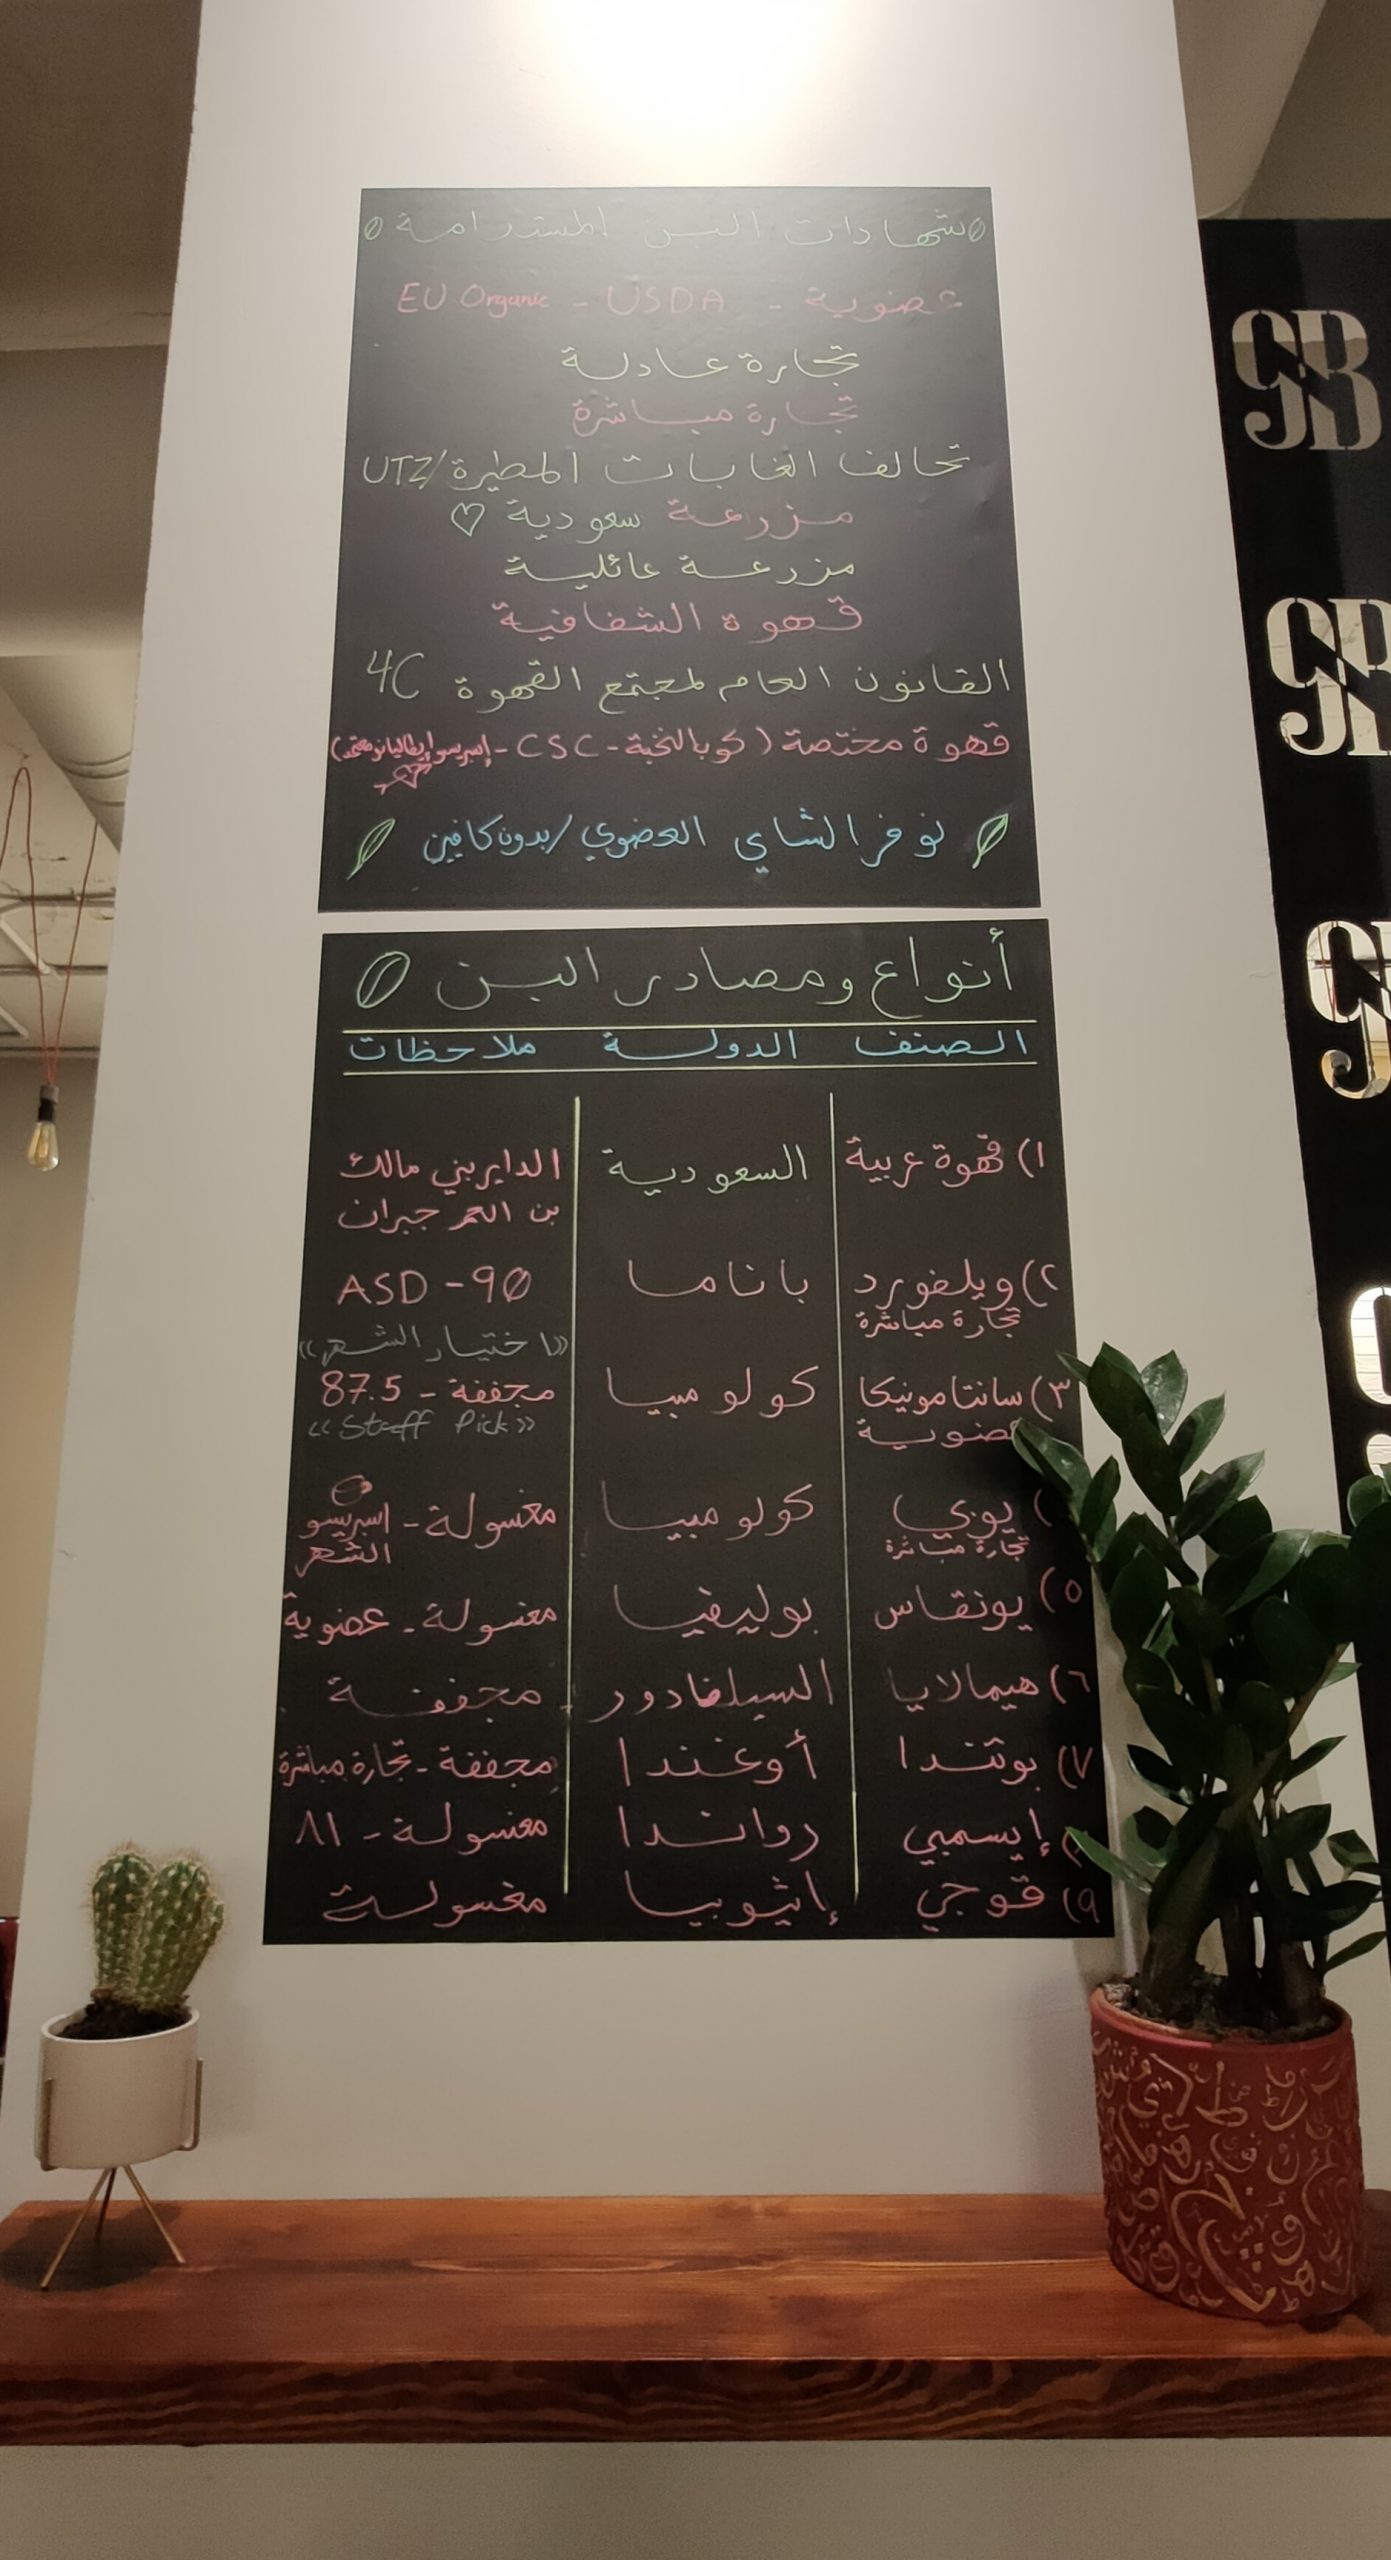 شهادات البن المستدامة
عضوية - USDA - EU Organic
تجارة عادلة
تجارة مباشرة
تحالف الغابات المطيرة/UTZ
مزرعة سعودية
مزرعة عائلية
قهوة الشفافية
القانون العام لمجتمع القهوة 4C
قهوة مختصة (كوب النخبة - CSC - إسبريسو إيطاليانو معتمد)
نوفر الشاي العضوي/بدون كافيين
أنواع ومصادر البن
الصنف الدولة ملاحظات
١) قهوة عربية السعودية الداير بني مالك
جبران
٢) ويلفورد باناما ASD - 90
تجارة مباشرة
«اختيار الشهر»
٣) سانتا مونيكا كولومبيا مجففة - 87.5
عضوية «Staff Pick»
بوزي كولومبيا مغسولة - اسبريسو
تجارة مباشرة الشهر
٥) يونقاس بوليفيا مغسولة - عضوية
٦) هيمالايا السيلفادور مجففة
٧) بوتندا أوغندا مجففة - تجارة مباشرة
إيسمبي رواندا مغسولة - ٨١
٩) قوجي إثيوبيا مغسولة
SB
SB